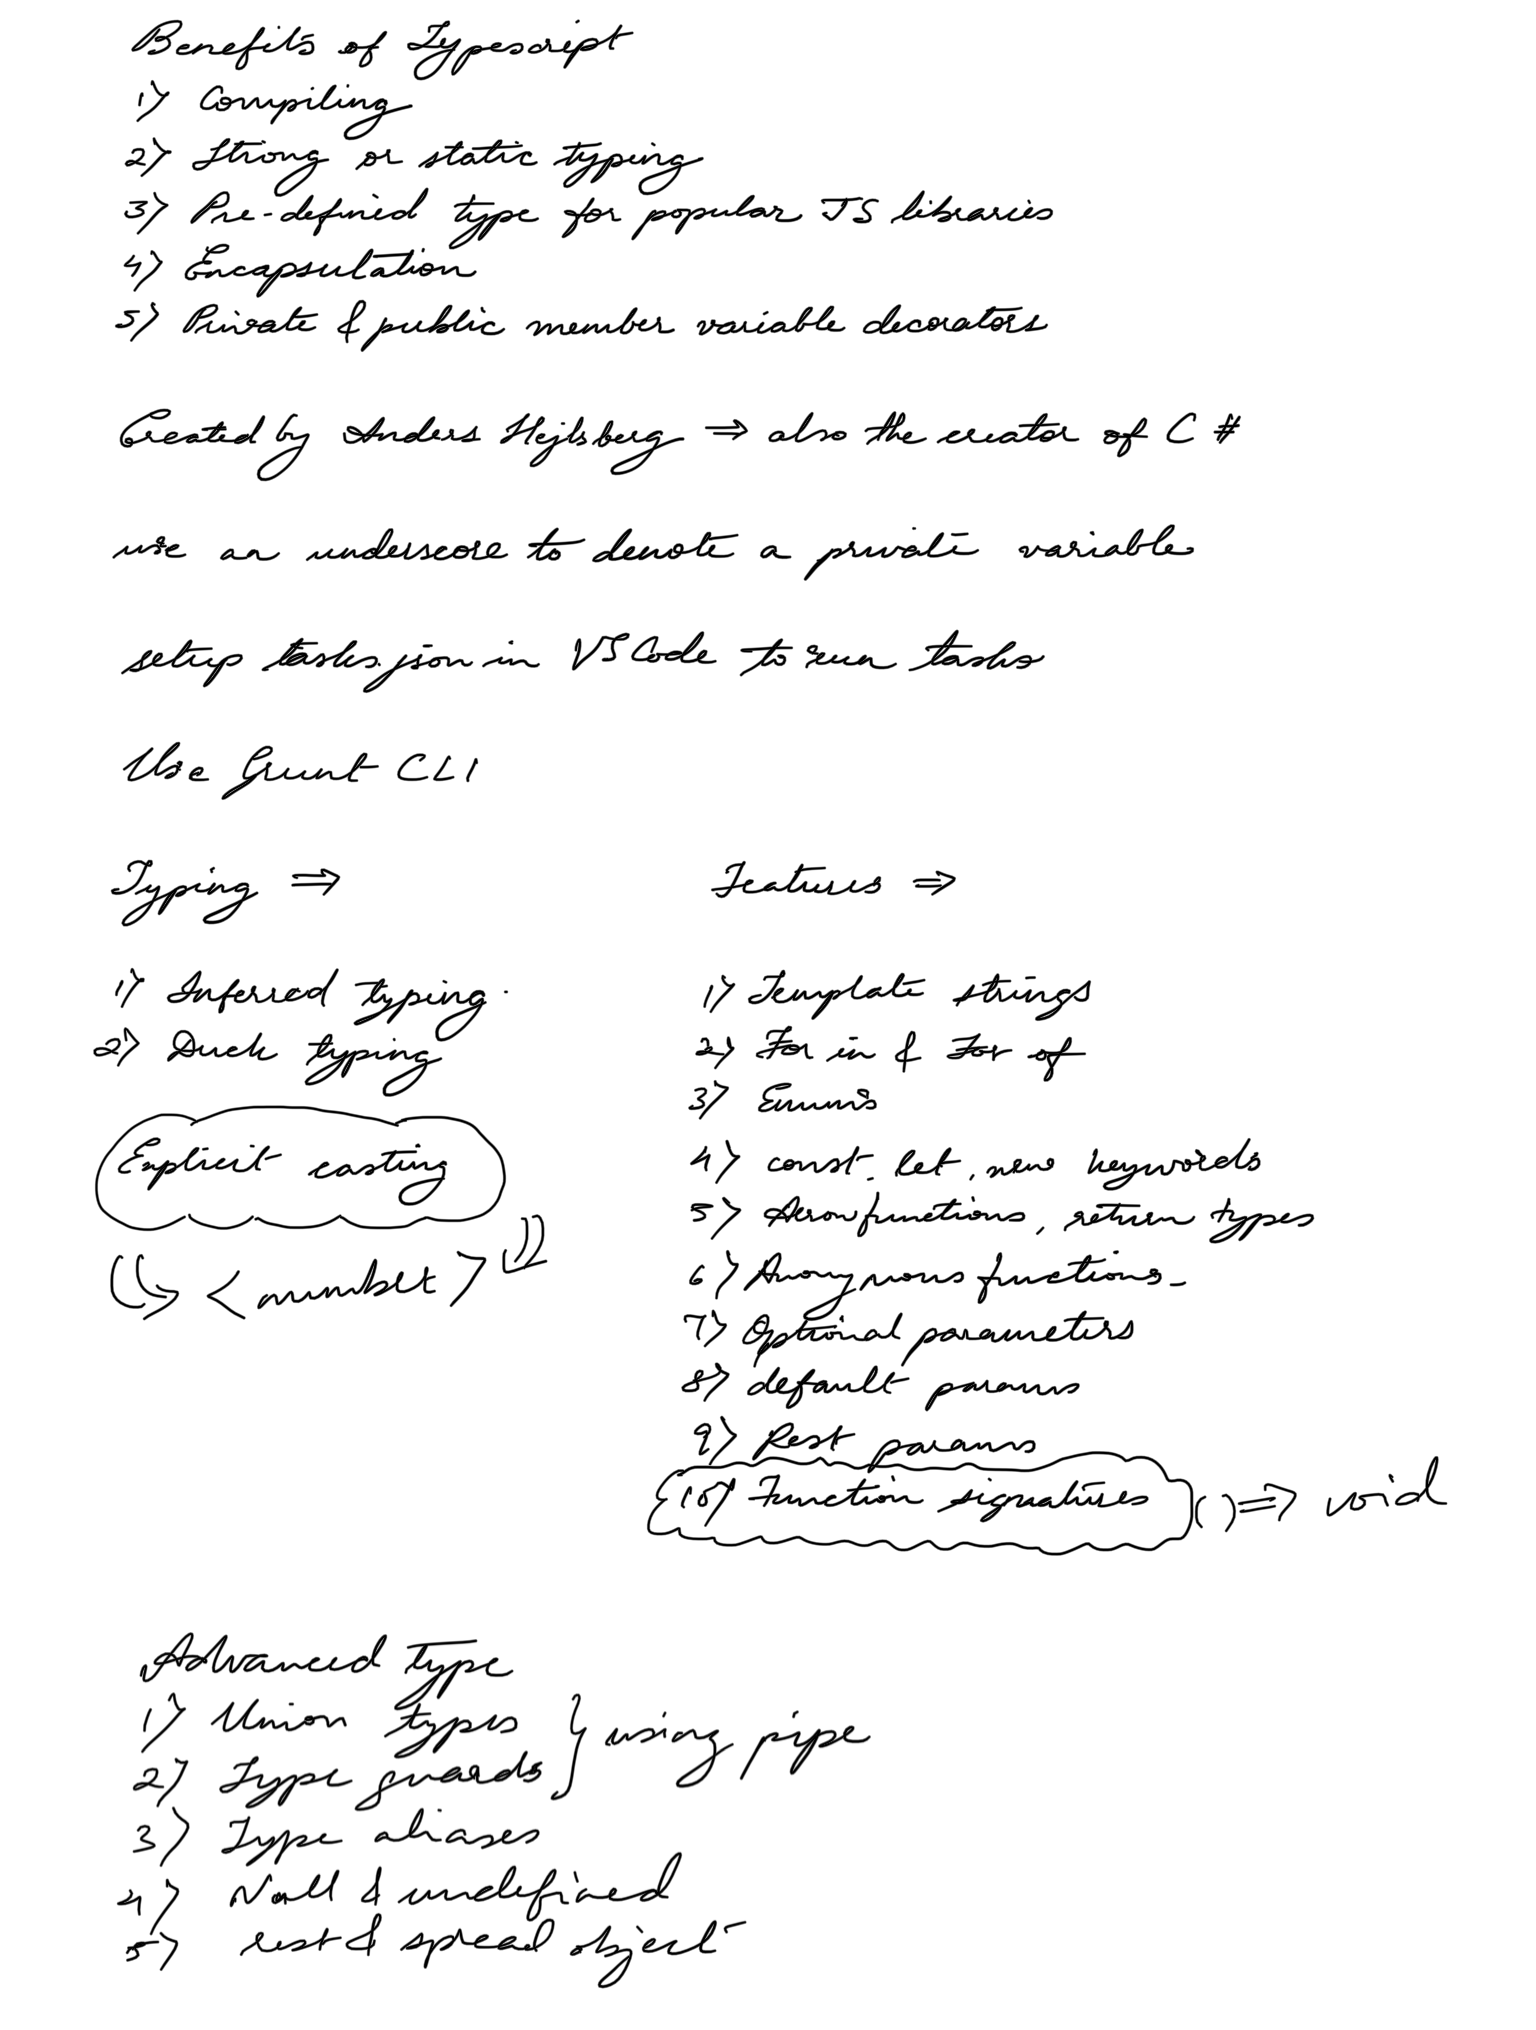 Benefits of Typescript
1) Compiling
2) Strong or static typing
3) Pre-defined type for popular JS libraries
4) Encapsulation
5) Private & public member variable decorators
Created by Anders Hejlsberg ⇒ also the creator of C #
use an underscore to denote a private variable
setup tasks.json in VS Code to run tasks
Use Grunt CLI
Typing ⇒
1) Inferred typing.
2) Duck typing
Explicit casting
<number>
Features ⇒
1) Template strings
2) For in & For of
3) Enums
4) const, let, new keywords
5) Arrow functions, return types
6) Anonymous functions
7) Optional parameters
8) default params
9) Rest params
10) Function signatures () ⇒ void
Advanced type
1) Union types } using pipe
2) Type guards
3) Type aliases
4) Null & undefined
5) rest & spread object